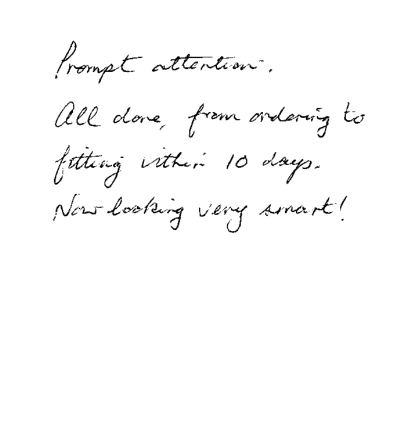 Prompt attention.
All done, from ordering to
fitting within 10 days.
Now looking very smart!